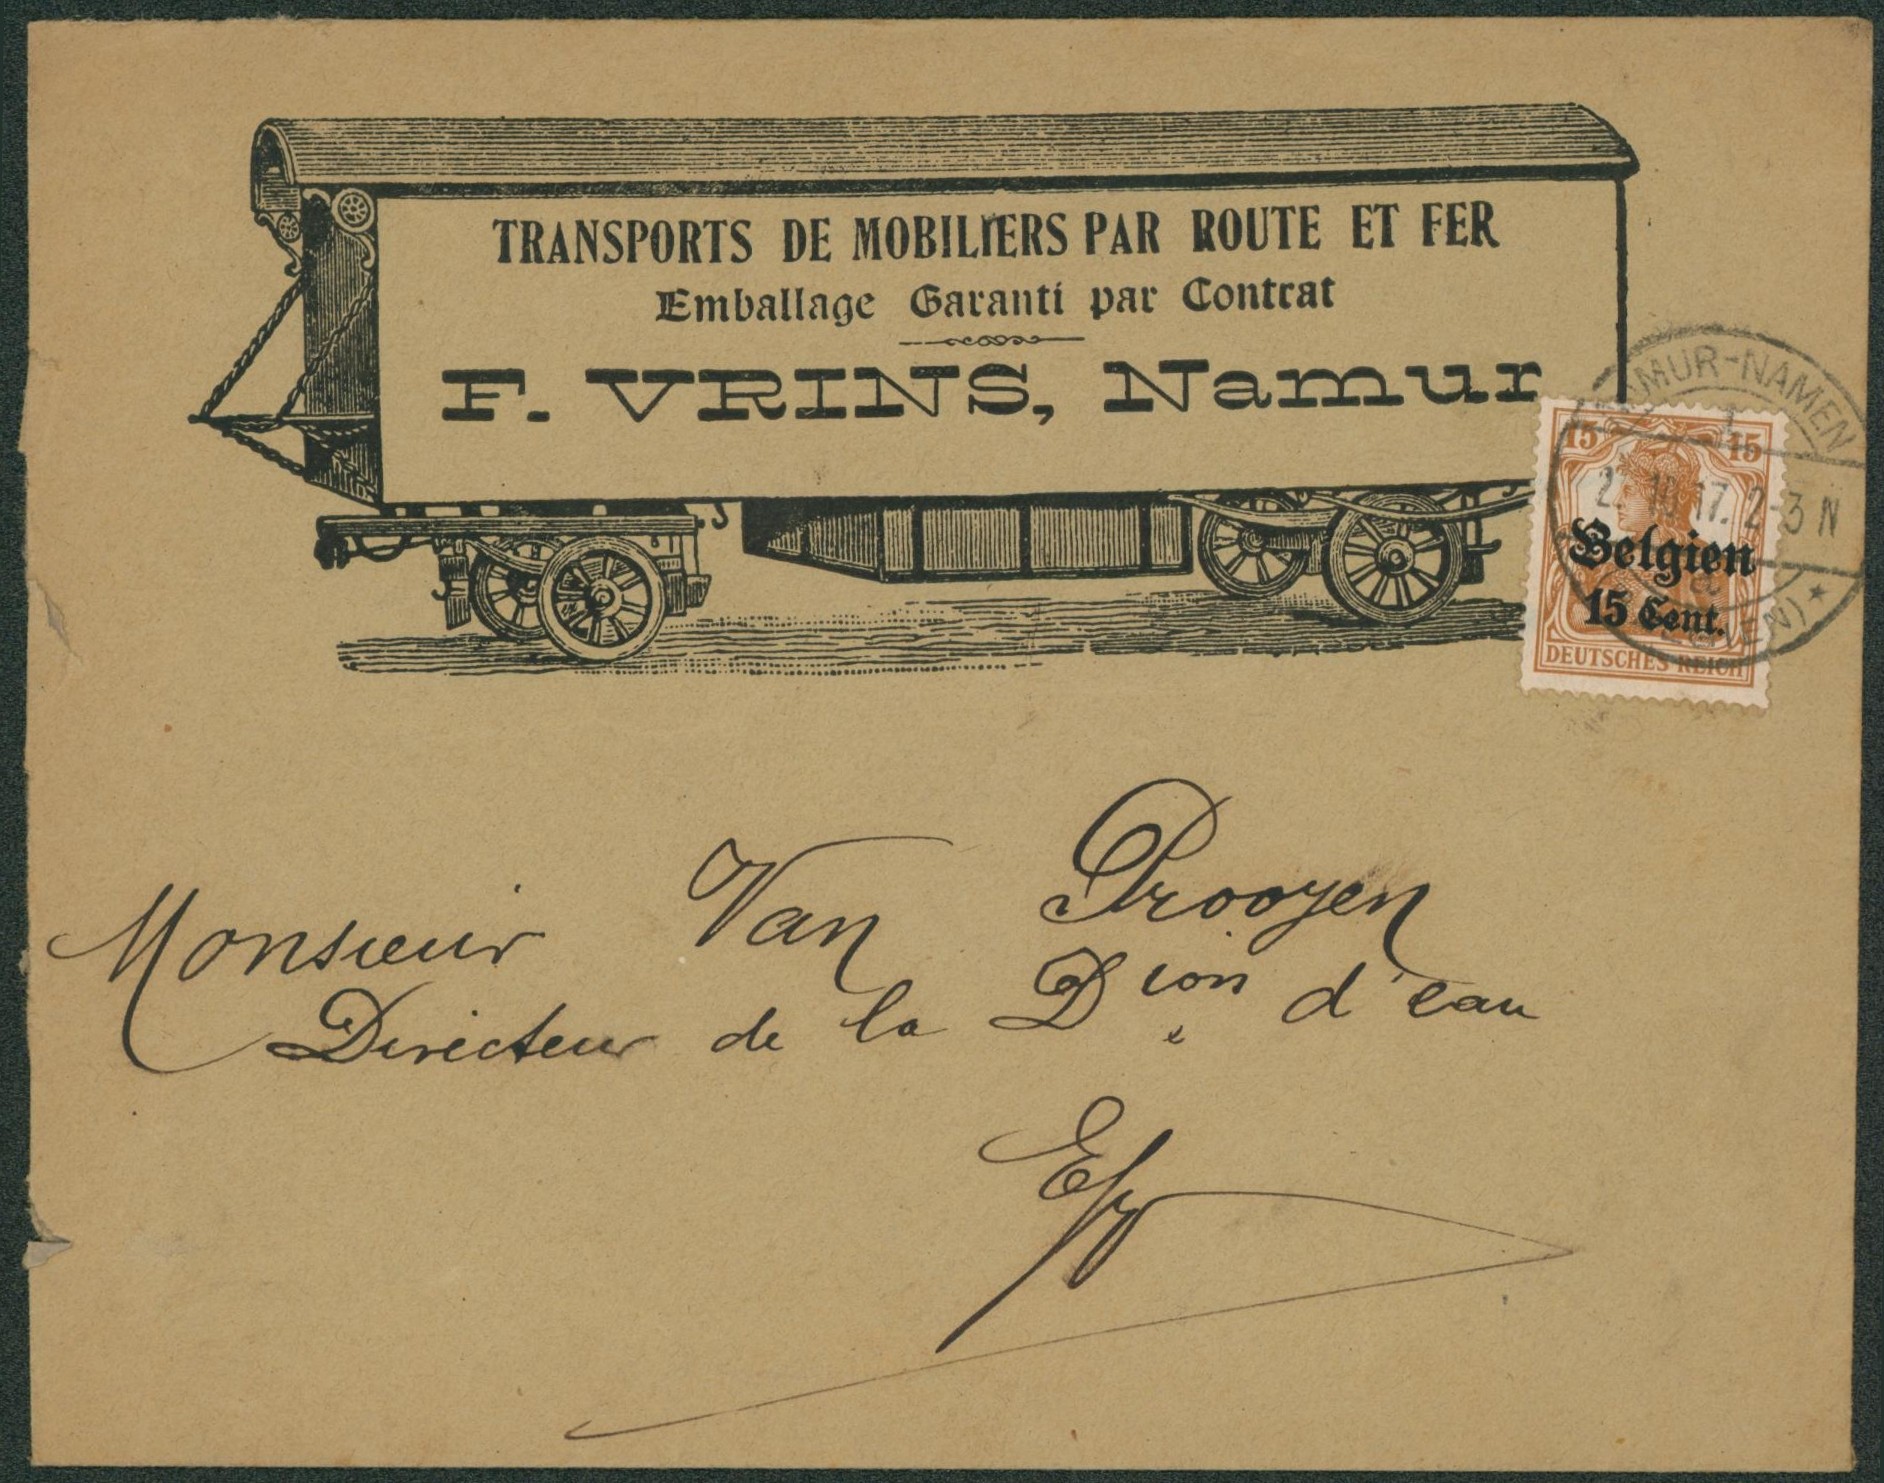 TRANSPORTS DE MOBILIERS PAR ROUTE ET FER
Emballage Garanti par Contrat
F. VRINS, Namur
NAMUR-NAMEN
1
2. 10 17. 2-3 N
15 15
Belgien
15 Cent.
DEUTSCHES REICH
Monsieur Van Prooyen
Directeur de la Dion d'eau
E/V